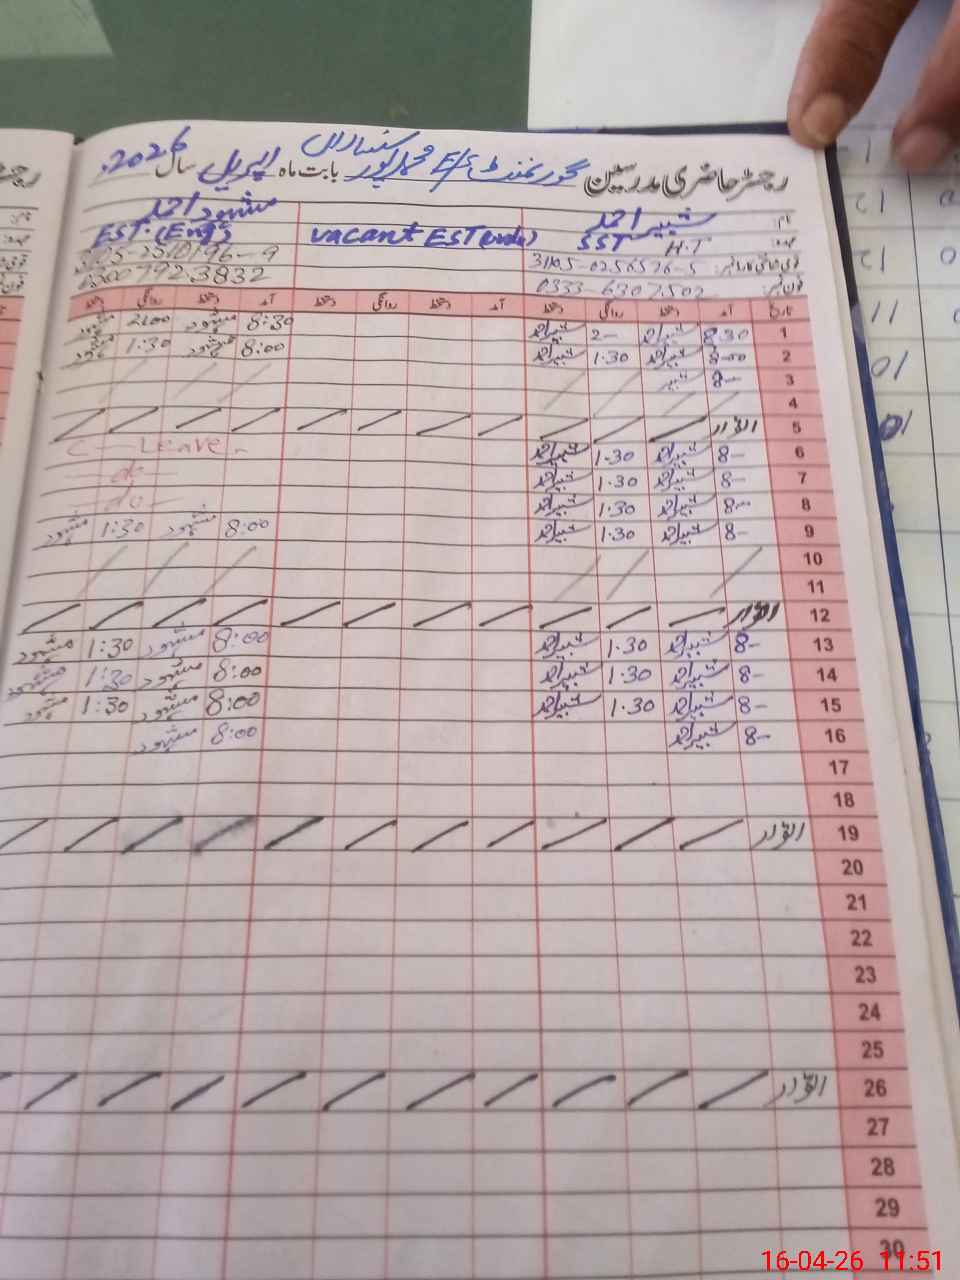 رجسٹر حاضری مدرسین گورنمنٹ E/S محمد پور سنساراں بابت ماہ اپریل سال 2026
نام: شبیر احمد مشہود احمد
عہدہ: SST H.T vacant EST EST.(Eng)
قومی شناختی کارڈ نمبر: 31105-0256576-5
فون نمبر: 0333-6307502 03007923832
تاریخ آمد دستخط روانگی دستخط آمد دستخط روانگی دستخط آمد دستخط روانگی دستخط
1 8:30 شبیر احمد 2- شبیر احمد 8:30 مشہود 2:00 مشہود
2 8-00 شبیر احمد 1.30 شبیر احمد 8:00 مشہود 1:30 مشہود
3 8- شبیر
4
5 اتوار
6 8- شبیر احمد 1.30 شبیر احمد C - Leave -
7 8- شبیر احمد 1.30 شبیر احمد - do -
8 8- شبیر احمد 1.30 شبیر احمد - do -
9 8- شبیر احمد 1.30 شبیر احمد 8:00 مشہود 1:30 مشہود
10
11
12 اتوار
13 8- شبیر احمد 1.30 شبیر احمد 8:00 مشہود 1:30 مشہود
14 8- شبیر احمد 1.30 شبیر احمد 8:00 مشہود 1:30 مشہود
15 8- شبیر احمد 1.30 شبیر احمد 8:00 مشہود 1:30 مشہود
16 8- شبیر احمد 8:00 مشہود
17
18
19 اتوار
20
21
22
23
24
25
26 اتوار
27
28
29
30
16-04-26 11:51